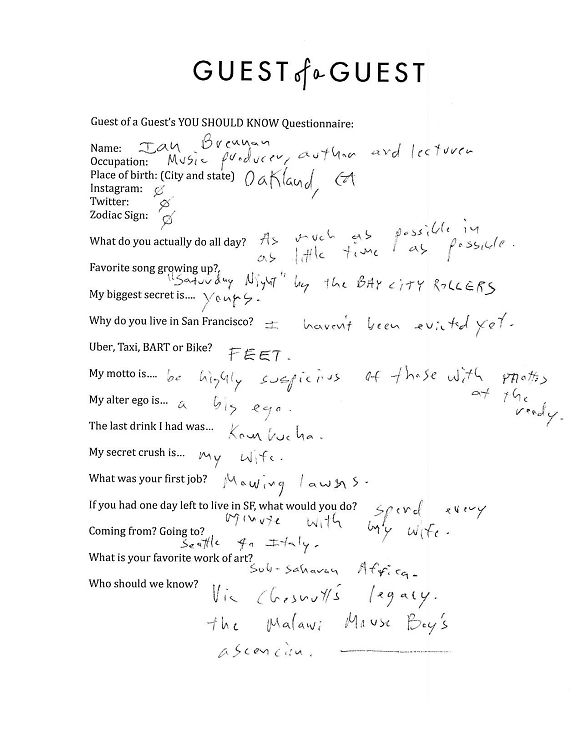 GUEST of a GUEST
Guest of a Guest's YOU SHOULD KNOW Questionnaire:
Name: Ian Brennan
Occupation: Music producer, author and lecturer
Place of birth: (City and state) Oakland, CA
Instagram: ∅
Twitter: ∅
Zodiac Sign: ∅
What do you actually do all day? As much as possible in
as little time as possible.
Favorite song growing up?
"Saturday Night" by the BAY CITY ROLLERS
My biggest secret is.... yours.
Why do you live in San Francisco? I haven't been evicted yet.
Uber, Taxi, BART or Bike? FEET.
My motto is.... be highly suspicius of those with mottos
at the
ready.
My alter ego is.... a big ego.
The last drink I had was... Kombucha.
My secret crush is... my wife.
What was your first job? Mowing lawns.
If you had one day left to live in SF, what would you do? spend every
minute with my wife.
Coming from? Going to?
Seattle to Italy.
What is your favorite work of art?
Sub-saharan Africa.
Who should we know?
Vic Chesnutt's legacy.
the Malawi Mouse Boy's
ascencion.